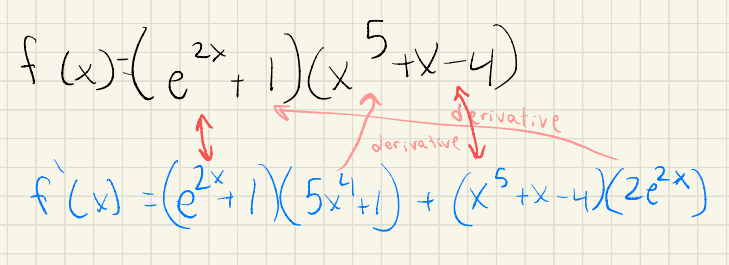 f(x)=(e^{2x}+1)(x^5+x-4)
derivative
derivative
f'(x)=(e^{2x}+1)(5x^4+1)+(x^5+x-4)(2e^{2x})